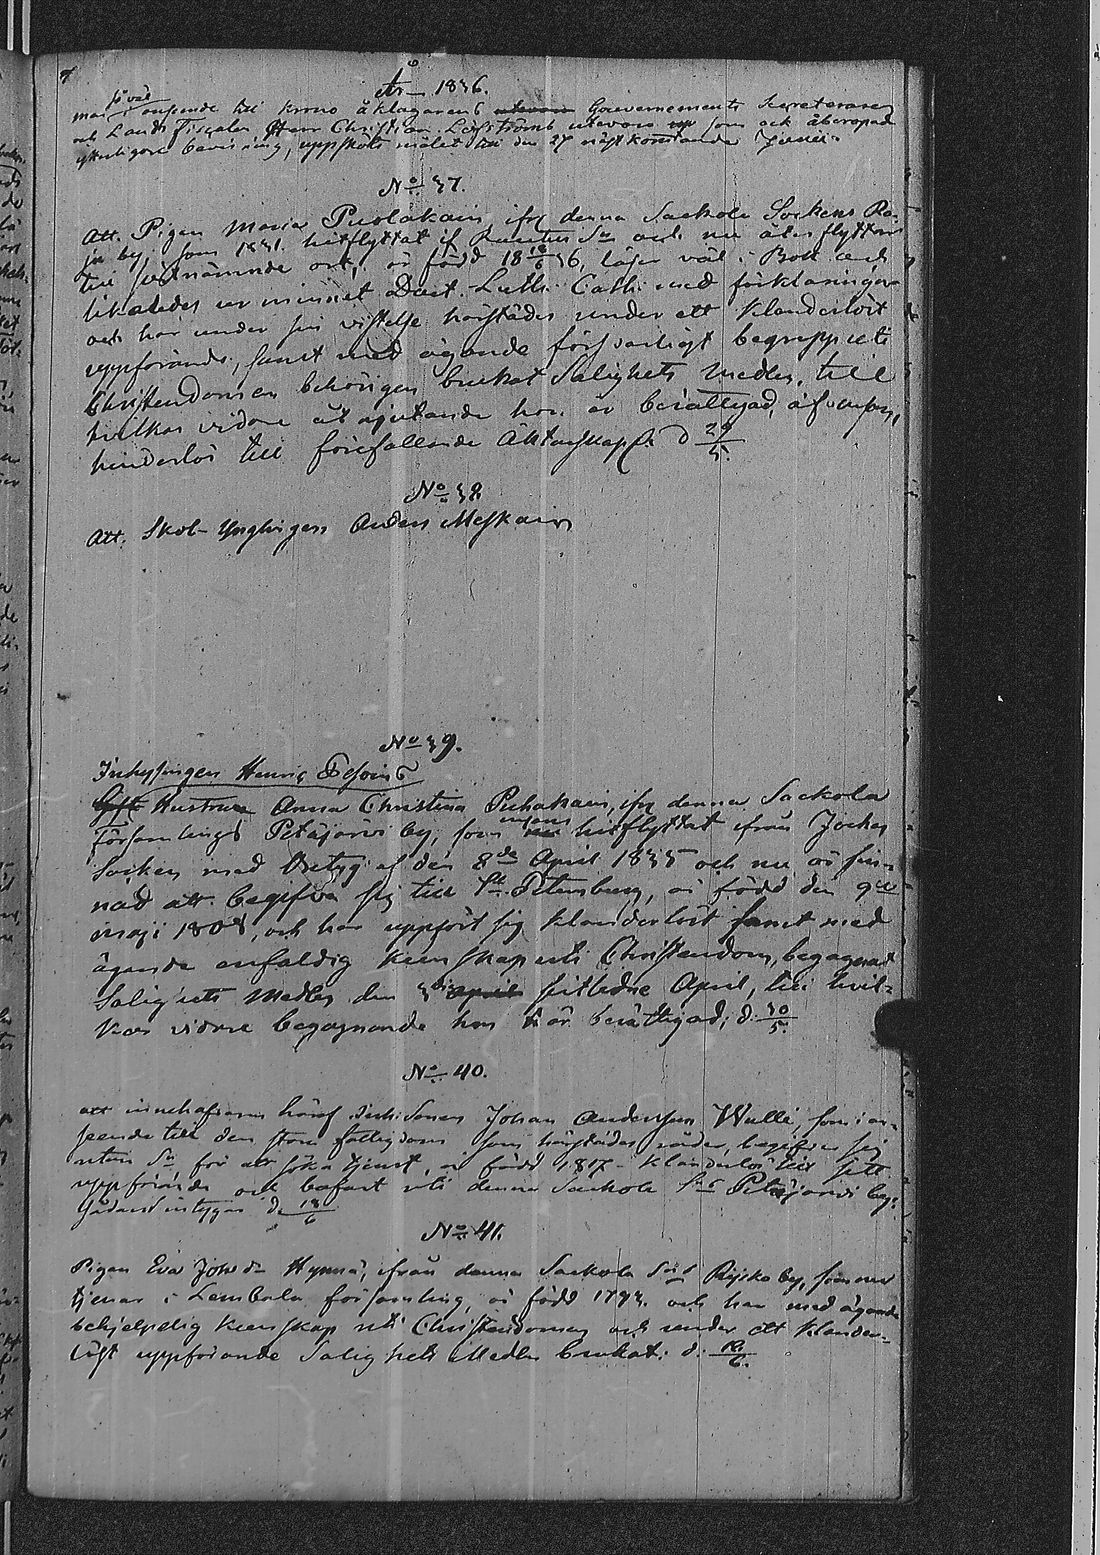 År 1836.
såväl
man i anseende till krono åklagarens Gouvernements Secreteraren
och Lands Fiscalen, Herr Christian Löfströms utevaro som ock åberopad
ytterligare bevisning, uppskots målet till den 27 nästkommande Junii.
No 37.
Att. Pigan Maria Puolakain, ifrån denna Sackola Sockens Ra-
ja by, som 1831. hitflyttat if. Rautus Sn och nu åter flyttar
till förenämnde ort, är född 18, läser väl i Bok och
likaledes ur minnet Doct. Luth. Cath. med förklaringen
och har under sin vistelse härstädes under ett klanderlöst
uppförande, samt med ägande försvarligt begrepp uti
Christendomen behörigen brukat Salighets Medlen, till
hvilkas vidare åtnjutande hon är berättigad, äfvensom
hinderlös till förefallande Äktenskap. d 29/5.
No 38
Att. Skol-Ynglingen Anders Meskain
No 39.
Inhysingen Henric Tesoins
Hustrun Anna Christina Puhakain, ifrån denna Sackola
Församlings Petäjärvi by, som hitflyttat ifrån Jockas
Socken med Betyg af den 8de April 1835 och nu är sin-
nad att begifva sig till St. Petersburg, är född den 9de
maji 1808, och har uppfört sig klanderlöst samt med
ägande enfaldig kunskap uti Christendom, begagnat
Salighets Medlen den 3die sistledne April, till hvil-
kas vidare begagnande hon är berättigad; d. 30/5.
No 40.
att innehafvaren häraf Johan Andersson Wulli, som i an-
seende till den stora fattigdom som härstädes råder, begifver sig
utom Sn för att söka tjenst, är född 1817 - klanderlös till sitt
uppförande och bofast uti denna Sackola Sns Petäjärvi by,
d 18/6
No 41.
Pigan Eva Johsdr Hynnä, ifrån denna Sackola Sns Riiska by, som nu
tjenar i Lembala församling, är född 1793. och har med ägande
behjelpelig kunskap uti Christendomen och under ett klander-
löst uppförande Salighets Medlen brukat. d.